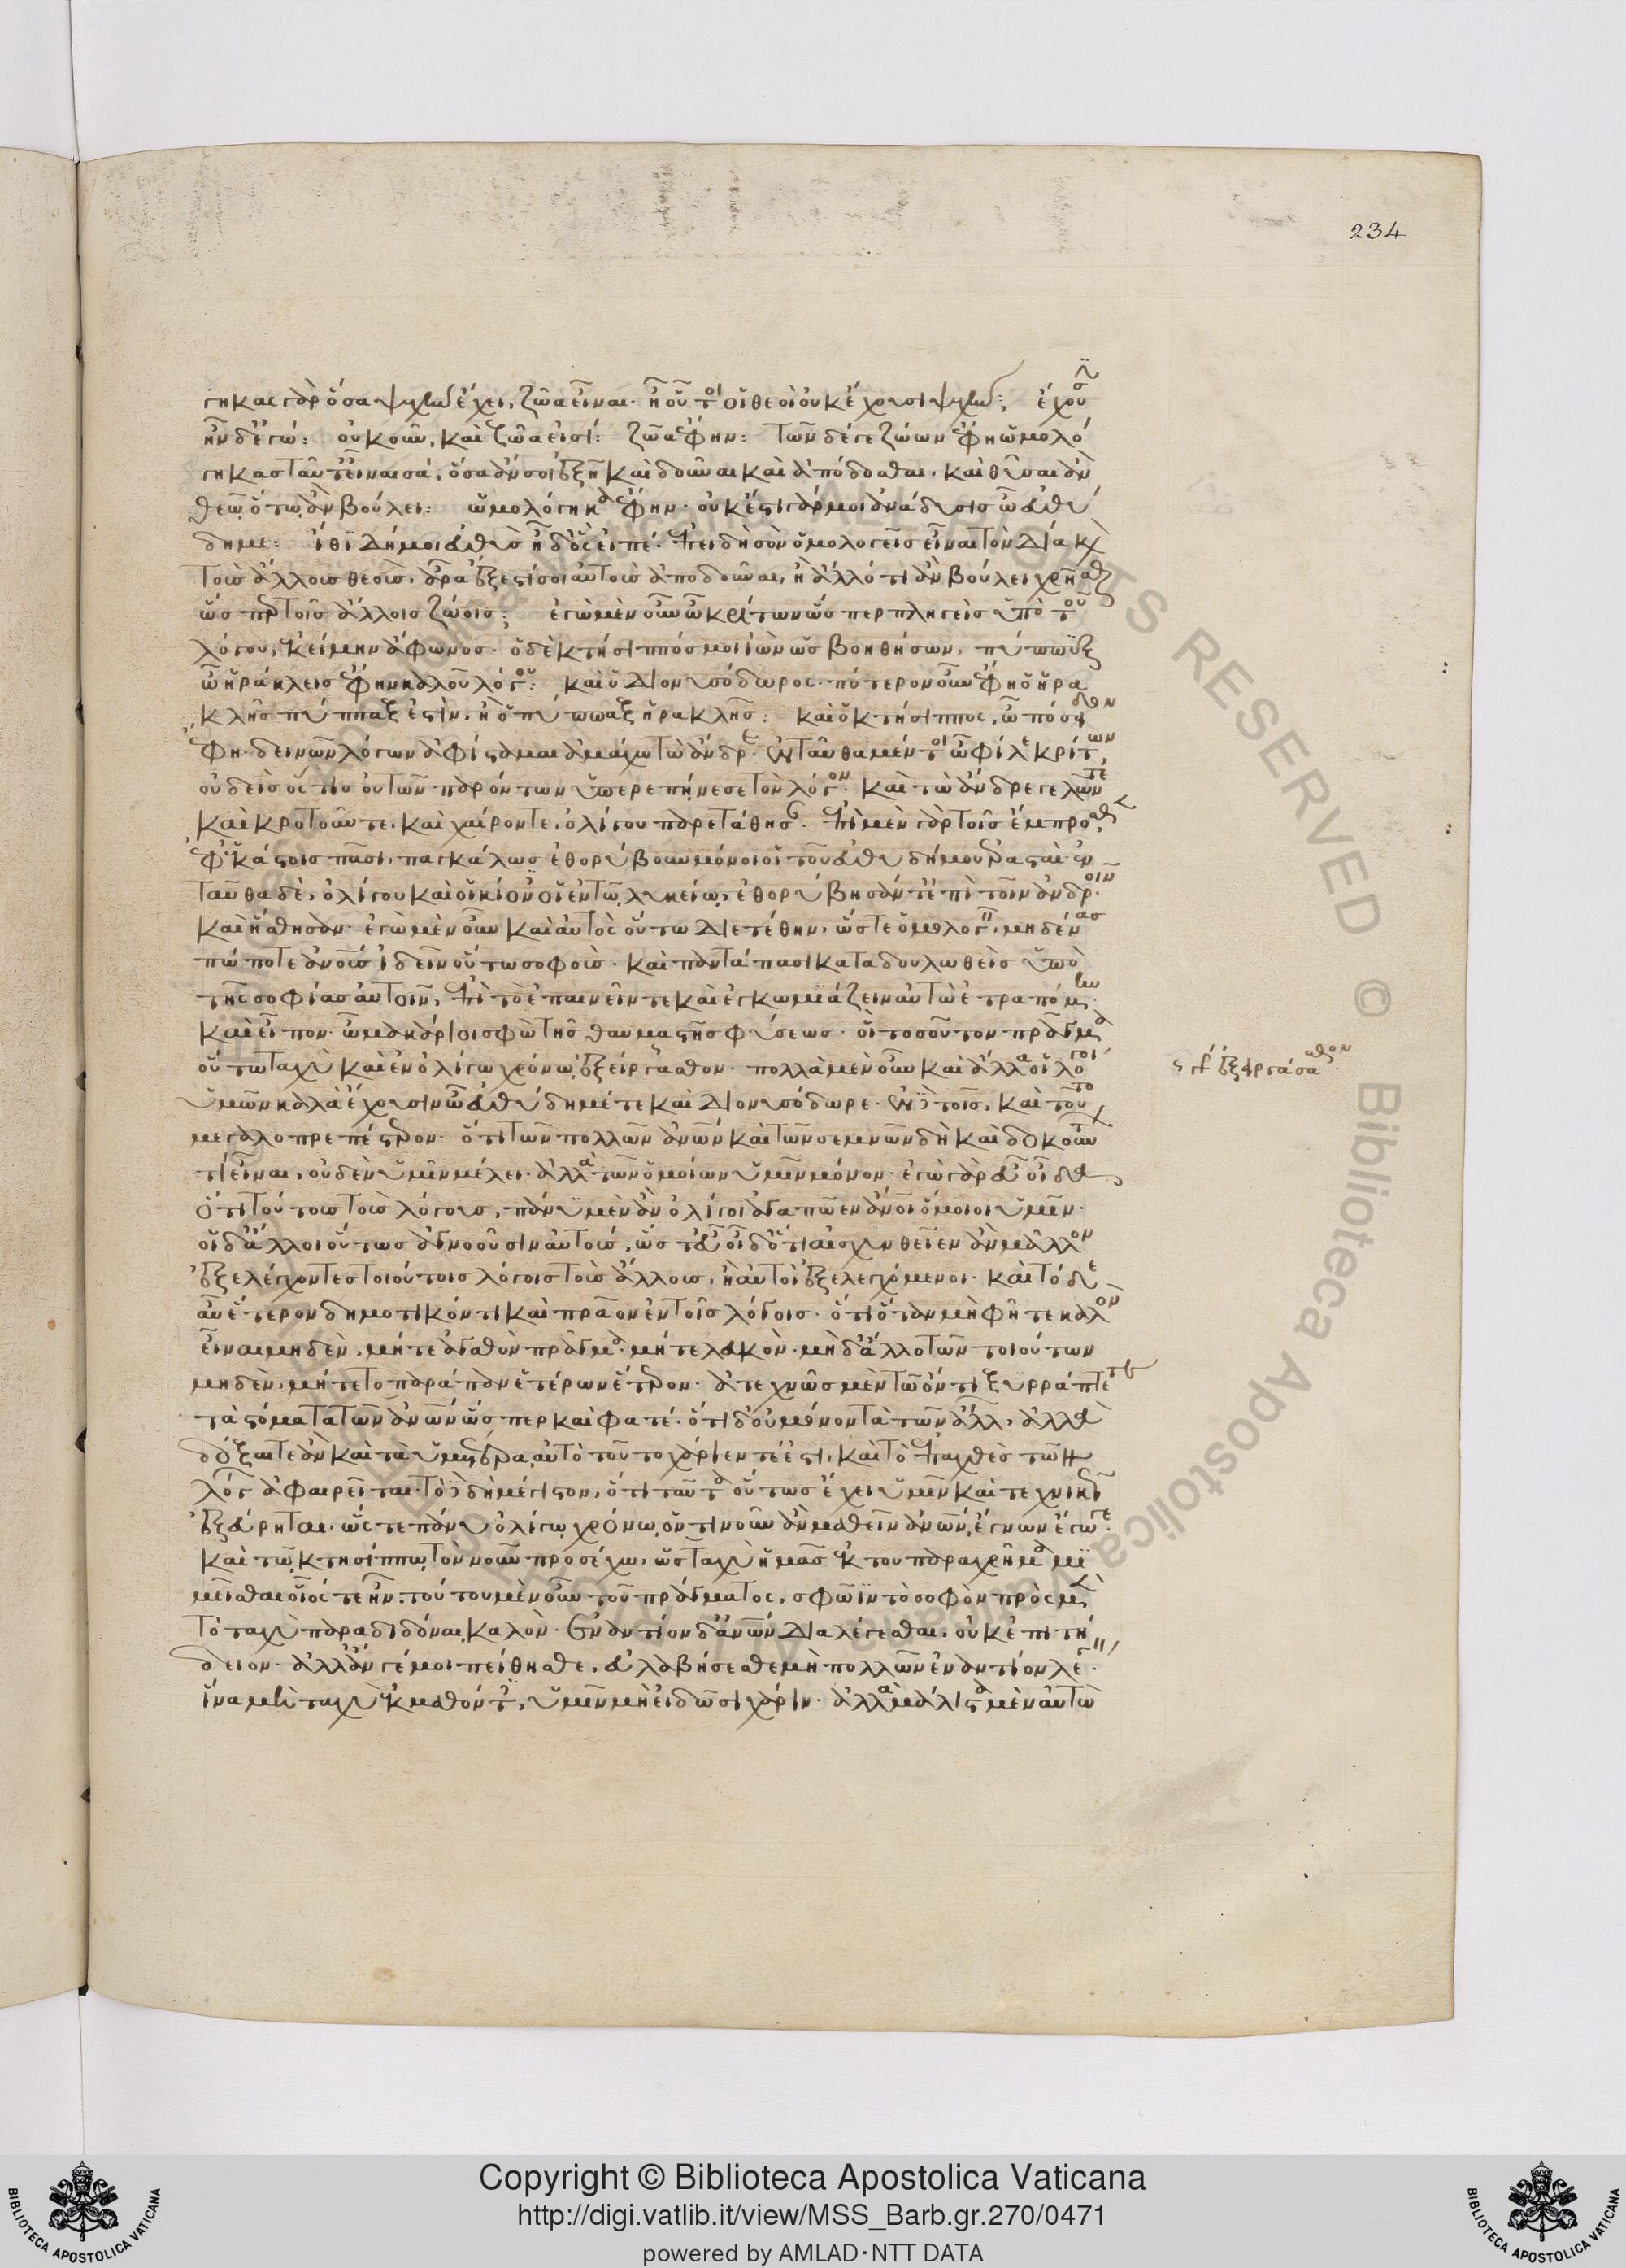 234
γηκας γὰρ ὅσα ψυχὴν ἔχει, ζῶα εἶναι. ἢ οὗτοι οἱ θεοὶ οὐκ ἔχουσι ψυχήν; ἔχουσιν
ἦν δ' ἐγώ: οὐκοῦν, καὶ ζῶα εἰσί: ζῶα ἔφην: τῶν δέ γε ζώων ἔφη ὡμολό
γηκας ταῦτ' εἶναι σά, ὅσα ἄν σοι ἐξῆ καὶ δοῦναι καὶ ἀποδόσθαι. καὶ θῦσαι ἂν
θεῷ ὅτῳ ἂν βούλει: ὡμολόγηκα ἔφην. οὐκ ἔστι γάρ μοι ἀνάδυσις ὦ εὐθύ
δημε: ἴθι δή μοι εὐθὺς ἦ δ' ὃς εἰπέ. ἐπειδὴ σὸν ὁμολογεῖς εἶναι τὸν δία καὶ
τοὺς ἄλλους θεοὺς, ἆρα ἔξεστί σοι αὐτοὺς ἀποδοῦναι, ἢ ἄλλό τι ἂν βούλει χρῆσθαι
ὥσπερ τοῖς ἄλλοις ζώοις; ἐγὼ μὲν οὖν ὦ κρίτων ὥσπερ πληγεὶς ὑπὸ τοῦ
λόγου, ἐκείμην ἄφωνος. ὁ δὲ κτήσιππός μοι ἰὼν ὡς βοηθήσων, πύππαξ
ὦ ἡράκλεις ἔφη καλοῦ λόγου: καὶ ὁ διονυσόδωρος. πότερον οὖν ἔφη ὁ ἡρα
κλῆς πύππαξ ἐστὶν, ἢ ὁ πύππαξ ἡρακλῆς: καὶ ὁ κτήσιππος, ὦ πόσειδον
ἔφη. δεινῶν λόγων ἀφίσταμαι ἀμάχω τὼ ἄνδρε. ἐνταῦθα μέντοι ὦ φίλε κρίτων,
οὐδεὶς ὅστις οὐ τῶν παρόντων ὑπερεπήνεσε τὸν λόγον. καὶ τὼ ἄνδρε γελῶντε
καὶ κροτοῦντε, καὶ χαίροντε, ὀλίγου παρετάθησαν. ἐπὶ μὲν γὰρ τοῖς ἔμπροσθεν
ἐφ' ἑκάστοις πᾶσι, παγκάλως ἐθορύβουν μόνοι οἱ τοῦ εὐθυδήμου ἐρασταί. ἐν
ταῦθα δὲ, ὀλίγου καὶ οἱ κίονες οἱ ἐν τῷ λυκείῳ, ἐθορύβησάν τ' ἐπὶ τοῖν ἀνδροῖν
καὶ ἥσθησαν. ἐγὼ μὲν οὖν καὶ αὐτὸς οὕτω διετέθην, ὥστε ὁμολογεῖν, μηδένας
πώποτε ἀνθρώπους ἰδεῖν οὕτω σοφοὺς. καὶ παντάπασι καταδουλωθεὶς ὑπὸ
τῆς σοφίας αὐτοῖν, ἐπὶ τὸ ἐπαινεῖν τε καὶ ἐγκωμιάζειν αὐτὼ ἐτραπόμην.
καὶ εἶπον. ὦ μακάριοι σφὼ τῆς θαυμαστῆς φύσεως. οἳ τοσοῦτον πρᾶγμα
οὕτω ταχὺ καὶ ἐν ὀλίγῳ χρόνῳ ἐξείργασθον. πολλὰ μὲν οὖν καὶ ἄλλα οἱ λόγοι
γρ ἐξειργάσασθον.
ὑμῶν καλὰ ἔχουσιν ὦ εὐθύδημέ τε καὶ διονυσόδωρε. ἐν δὲ τοῖς, καὶ τοῦτο
μεγαλοπρεπέστερον. ὅτι τῶν πολλῶν ἀνθρώπων καὶ τῶν σεμνῶν δὴ καὶ δοκούντων
τὶ εἶναι, οὐδὲν ὑμῖν μέλει. ἀλλὰ τῶν ὁμοίων ὑμῖν μόνον. ἐγὼ γὰρ εὖ οἶδα,
ὅτι τούτους τοὺς λόγους, πάνυ μὲν ἂν ὀλίγοι ἀγαπῷεν ἄνθρωποι ὅμοιοι ὑμῖν.
οἱ δ' ἄλλοι οὕτως ἀγνοοῦσιν αὐτοὺς, ὥστ' εὖ οἶδ' ὅτι αἰσχυνθεῖεν ἂν μᾶλλον
ἐξελέγχοντες τοιούτοις λόγοις τοὺς ἄλλους, ἢ αὐτοὶ ἐξελεγχόμενοι. καὶ τόδε
αὖ ἕτερον δημοτικόν τι καὶ πρᾶον ἐν τοῖς λόγοις. ὅτι ὅταν μὴ φῆτε καλὸν
εἶναι μηδὲν, μήτε ἀγαθὸν πρᾶγμα. μήτε λευκὸν. μὴ δ' ἄλλο τῶν τοιούτων
μηδὲν, μήτε τὸ παράπαν ἑτέρων ἕτερον. ἀτεχνῶς μὲν τῷ ὄντι ξυρράπτετε
τὰ στόματα τῶν ἀνθρώπων ὥσπερ καὶ φατέ. ὅτι δ' οὐ μόνον τὰ τῶν ἄλλων, ἀλλὰ
δόξαιτε ἂν καὶ τὰ ὑμέτερα αὐτὸ τοῦτο χάριέν τέ ἐστι, καὶ τὸ ἐπαχθὲς τῶν
λόγων ἀφαιρεῖται. τὸ δὲ δὴ μέγιστον, ὅτι ταῦτα οὕτως ἔχει ὑμῖν καὶ τεχνικῶς
ἐξεύρηται. ὥστε πάνυ ὀλίγῳ χρόνῳ ὁντινοῦν ἂν μαθεῖν ἀνθρώπων, ἔγνων ἔγωγε
καὶ τῷ κτησίππῳ τὸν νοῦν προσέχων, ὡς ταχὺ ὑμᾶς ἐκ τοῦ παραχρῆμα μι
μεῖσθαι οἷός τε ἦν. τοῦτο μὲν οὖν τοῦ πράγματος, σφῷν τὸ σοφὸν πρὸς μὲν
τὸ ταχὺ παραδιδόναι, καλὸν. ἐναντίον δ' ἀνθρώπων διαλέγεσθαι, οὐκ ἐπιτή
δειον. ἀλλ' ἄν γ' ἐμοὶ πείθησθε, εὐλαβήσεσθε μὴ πολλῶν ἐναντίον λέγειν,
ἵνα μὴ ταχὺ ἐκμαθόντες, ὑμῖν μὴ εἰδῶσι χάριν. ἀλλὰ μάλιστα μὲν αὐτὼ
Copyright © Biblioteca Apostolica Vaticana
http://digi.vatlib.it/view/MSS_Barb.gr.270/0471
powered by AMLAD·NTT DATA